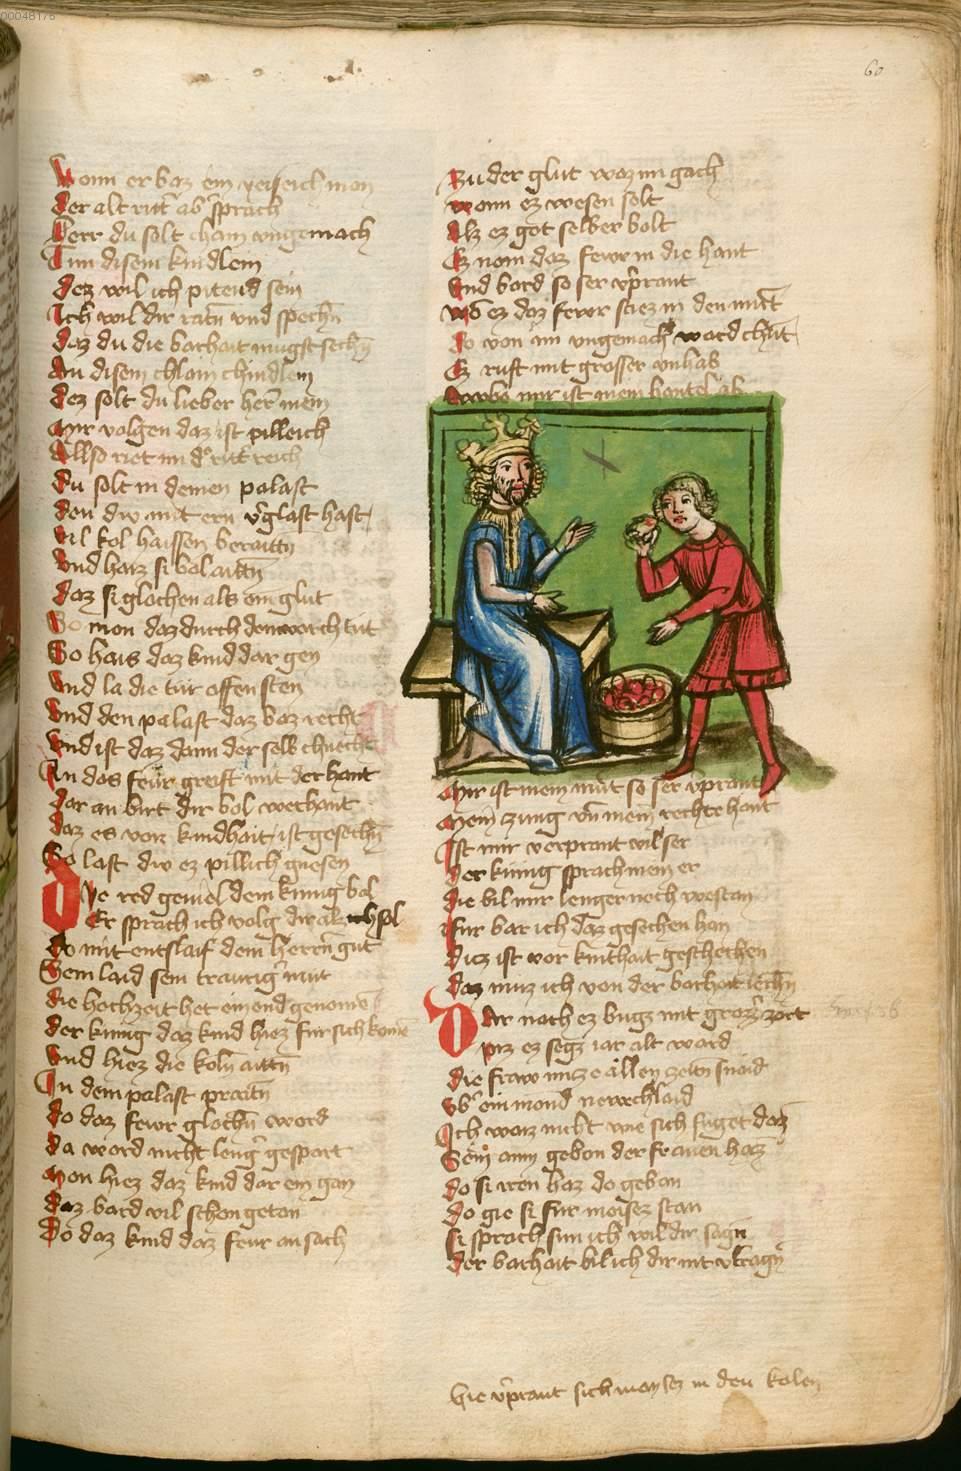 00048176
60
Wann er waz ein weiseich man
der alt ritt̃ ab̃ sprach
Herr du solt cham ungemach
Tun disem kindlein
dez wil ich pitend sein
Ich wil dir ratñ und spechñ
daz du die warhait mugst sechñ
An disem chlain chindlein
dez solt du lieber her mein
Mir volgen daz ist pilleich
Allso riet im d̾ ritt reich
du solt in deinen palast
den du mit ern v̾glast hast
vil kol haissen beraittñ
und haiz si wol aittñ
daz si glochen als ein glut
So man daz durch den worch tut
So hais daz kind dar gen
und la die tür offen sten
und den palast daz waz recht
und ist daz dann der selb chnecht
In das feur greift mit der hant
dar an wirt dir wol wechant
daz es von kindhait ist geschechñ
So last du ez pillich gnesen
Die red geviel dem kunig wol
Er sprach ich volg dir als ich sol
do mit entslaif dem herrñ gut
Sein laid sein traurig̾ mut
die hochzeit het ein end genomẽ
der kunig daz kind hiez fur sich komẽ
und hiez die kolñ aittñ
In dem palast praitñ
do daz fewr glochñ ward
da ward nicht leng̾ gespart
Man hiez daz kind dar ein gan
daz ward vil schon getan
Do daz kind daz feur an sach
Zu der glut waz im gach
wann ez wesen solt
Alz ez got selber wolt
Ez nam daz fewr in die hant
und ward so ser v̾prant
wo ez daz fewr stiez in den mũt
do von im ungemach ward chũt
Ez ruft mit grosser unhab
wwbe mir ist mein hantel ab
Mir ist mein mut so ser v̾prant
Mein zung vñ mein rechte hant
Ist mir verprant vil ser
der kunig sprach nein er
die wil mir lenger noch westan
fur war ich daz gesechen han
diz ist vor kinthait geschechen
daz muz ich von der warhait iechñ
Dar nach ez wugz mit groz̾ zart
piz ez segz iar alt ward
die fraw muz e allen zeitñ snaid
vb̾ ein mond new chlaid
Ich waiz nicht wie sich fuget daz
Sein amm gewan der frawen haz
do si iren haz do gewan
do gie si fur moises stan
si sprach sun ich wil dir sagñ
der warhait wil ich dir nit v̾tragñ
hie v̾prant sich moyses in den kolen